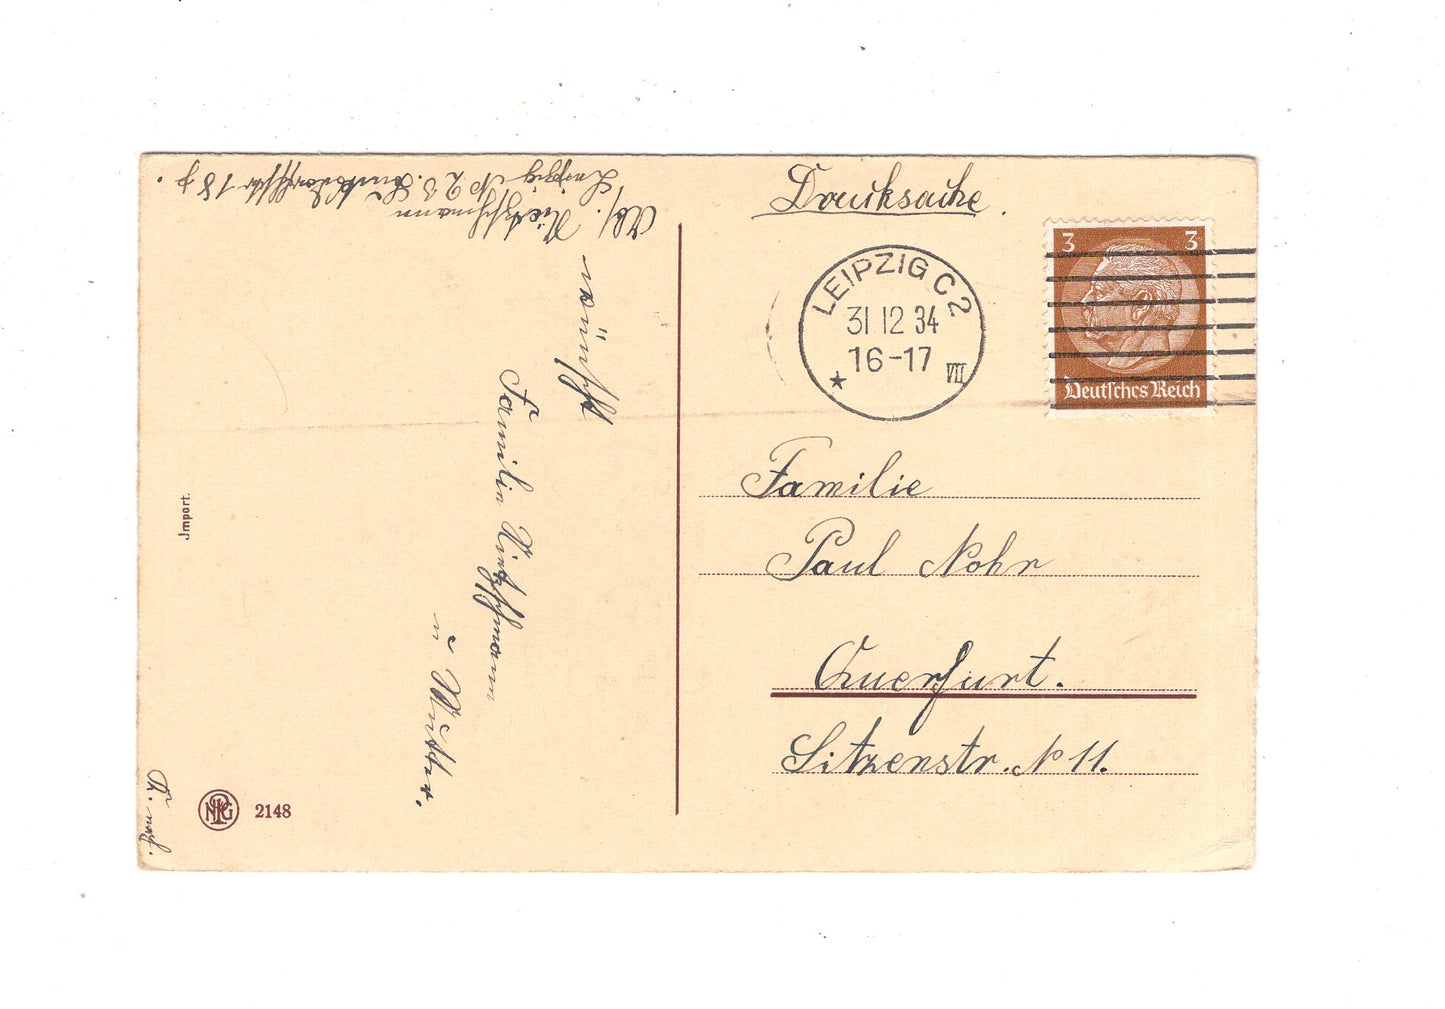 Drucksache.
3 3
Deutsches Reich
LEIPZIG C 2
31 12 34
16-17
VII
Familie
Paul Nohr
Querfurt.
Sitzenstr. № 11.
Abs.
Leipzig № 23.
wünscht
Familie
u. Mutter.
Import.
NPG 2148